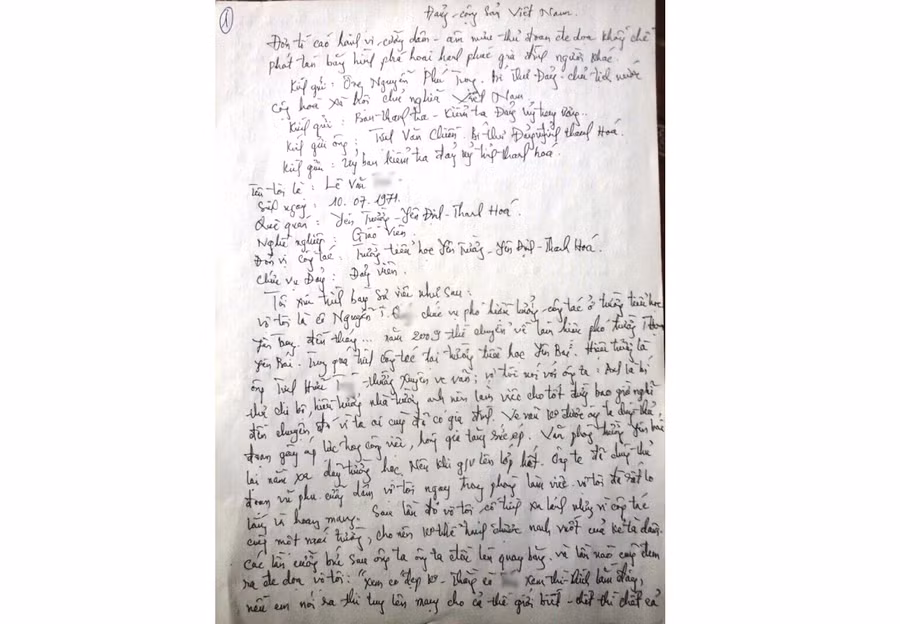 ①
Đảng cộng sản Việt Nam.
Đơn tố cáo hành vi cưỡng dâm - âm mưu thủ đoạn đe dọa khống chế
phát tán băng hình phá hoại hạnh phúc gia đình người khác.
Kính gửi: Ông Nguyễn Phú Trọng. Bí thư Đảng - chủ tịch nước
cộng hoà xã hội chủ nghĩa Việt Nam
Kính gửi: Ban thanh tra - Kiểm tra Đảng uỷ trung ương.
Kính gửi ông: Trịnh Văn Chiến. Bí thư Đảng tỉnh Thanh Hoá.
Kính gửi: Uỷ ban kiểm tra đảng uỷ tỉnh thanh hoá.
Tên tôi là: Lê Văn
Sinh ngày: 10.07.1971.
Quê quán: Yên Trường - Yên Định - Thanh Hoá.
Nghề nghiệp: Giáo Viên.
Đơn vị công tác: Trường tiểu học Yên Trường - Yên Định - Thanh Hoá.
Chức vụ Đảng: Đảng viên.
Tôi xin trình bày sự việc như sau:
vợ tôi là cô Nguyễn T. chức vụ phó hiệu trưởng công tác ở trường tiểu học
đến tháng ... năm 2009 thì chuyển về làm hiệu phó trường
Yên Bái. Trong quá trình công tác tại trường tiểu học Yên Bái. Hiệu trưởng là
ông Trịnh Hữu T thường xuyên ve vãn, vợ tôi nói với ông ta: Anh là bí
thư chi bộ, hiệu trưởng nhà trường, anh nên làm việc cho tốt đừng bao giờ nghĩ
đến chuyện đó vì ta ai cũng đã có gia đình. Ve vãn ko được ông ta dùng thủ
đoạn gây áp lực trong công việc, hòng gia tăng sức ép. Văn phòng trường Yên Bái
lại nằm xa dãy trường học. Nên khi g/v lên lớp hết. Ông ta đã dùng thủ
đoạn vũ phu cưỡng dâm vợ tôi ngay trong phòng làm việc. vợ tôi đã rất lo
lắng và hoang mang. Sau lần đó vợ tôi cố tình xa lánh nhưng vì công tác
cùng một mái trường, cho nên ko thể tránh được nanh vuốt của kẻ tà dâm.
các lần cưỡng bức sau ông ta ông ta đều lén quay băng. và lần nào cũng đem
ra đe dọa vợ tôi: "xem có đẹp ko - thằng xem thì thích lắm đấy,
nếu em nói ra thì tung lên mạng cho cả thế giới biết - chết thì chết cả